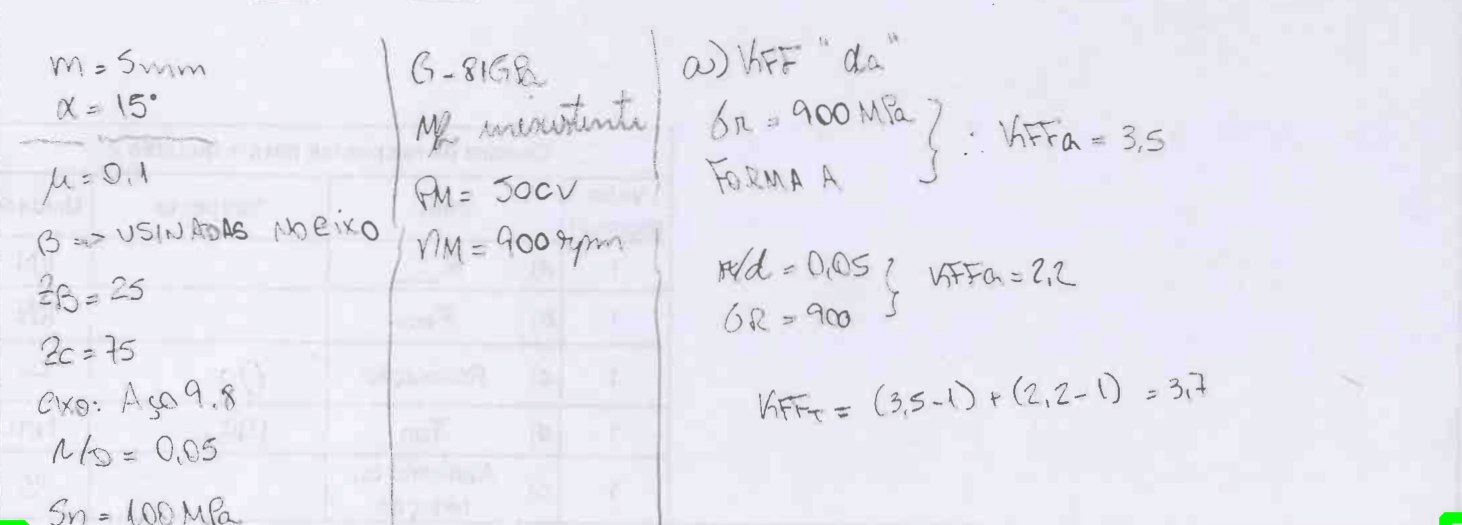 m = 5mm
α = 15°
μ = 0,1
β => USINADAS NO EIXO
ZB = 25
Zc = 75
eixo: Aço 9.8
r/D = 0,05
Sn = 100 MPa
G = 81GPa
Mf inexistente
PM = 50CV
nM = 900 rpm
a) KFF "da"
σR = 900 MPa
FORMA A
∴ KFFa = 3,5
r/d = 0,05
σR = 900
KFFa = 2,2
KFFT = (3,5-1) + (2,2-1) = 3,7